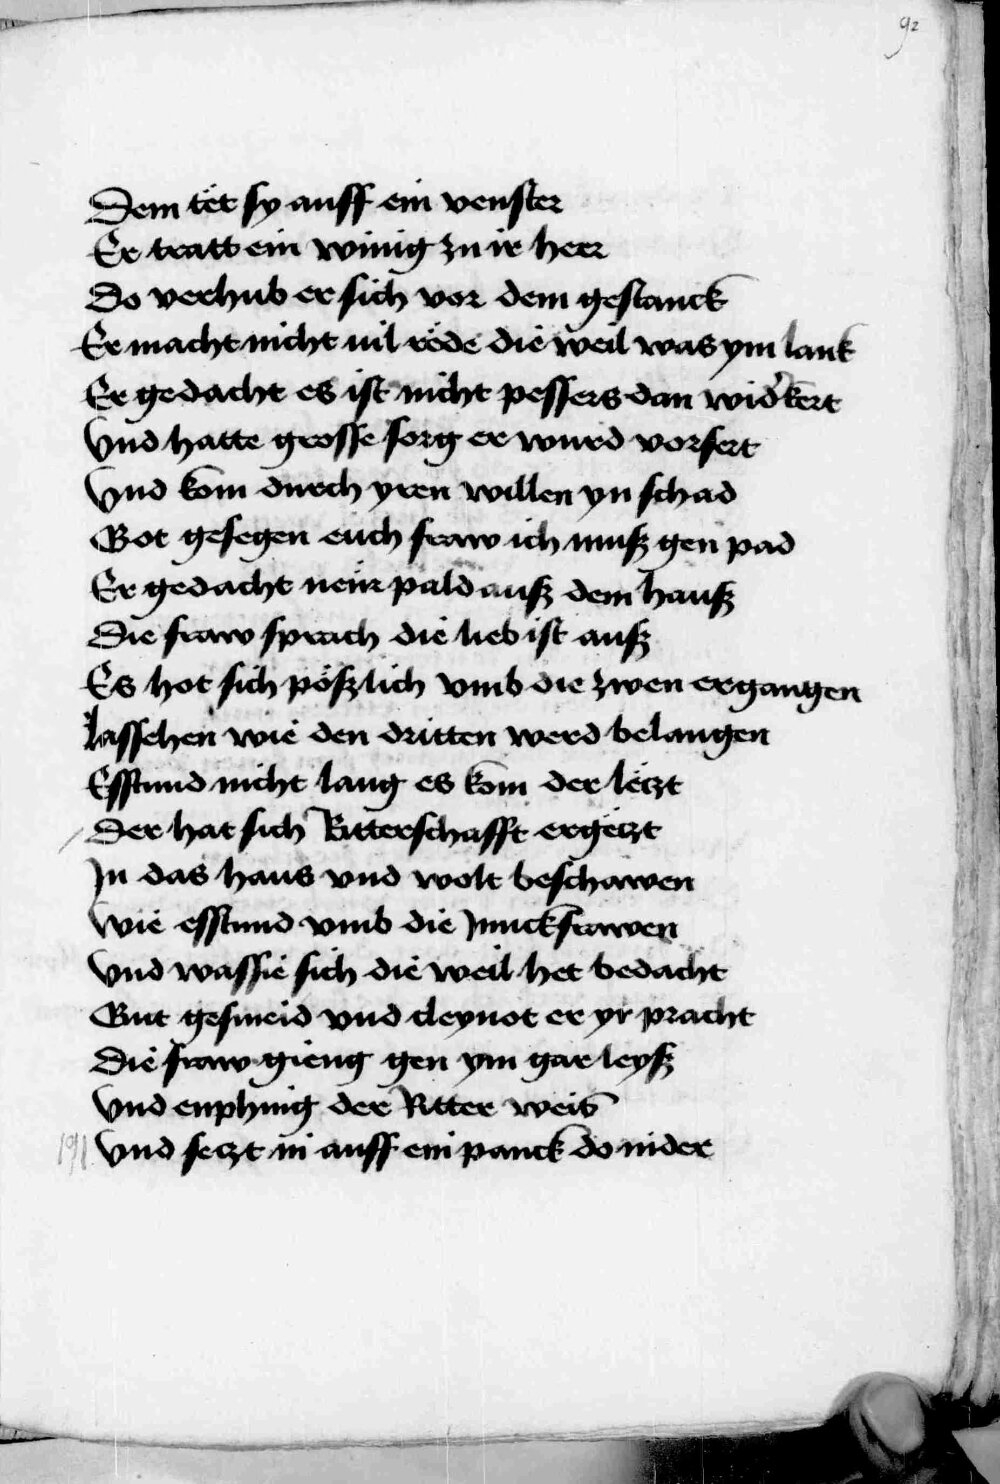 92
Dem tët sy auff ein venster
Er tratt ein winig zu ir herr
Do verhub er sich vor dem gestanck
Er macht nicht vil rëde die weil was ym lank
Er gedacht es ist nicht pessers dan wid'kert
Vnd hatte grosse sorg er wurd vorsert
Vnd kom durch yren willen yn schad
Got gesegen euch fraw ich musz gen pad
Er gedacht neür pald ausz dem hausz
Die fraw sprach die lieb ist ausz
Es hot sich pöszlich vmb die zwen ergangen
lassehen wie den dritten werd belangen
Esstund nicht lang es kom der lëtzt
Der hat sich Ritterschafft ergëtzt
In das haus vnd wolt beschawen
Wie esstund vmb die Junckfrawen
Vnd wassie sich die weil het bedacht
Gut gesmeid vnd cleynot er yr pracht
Die fraw gieng gen ym gar leysz
Vnd enphing der Ritter weis
191 Vnd setzt in auff ein panck do nider